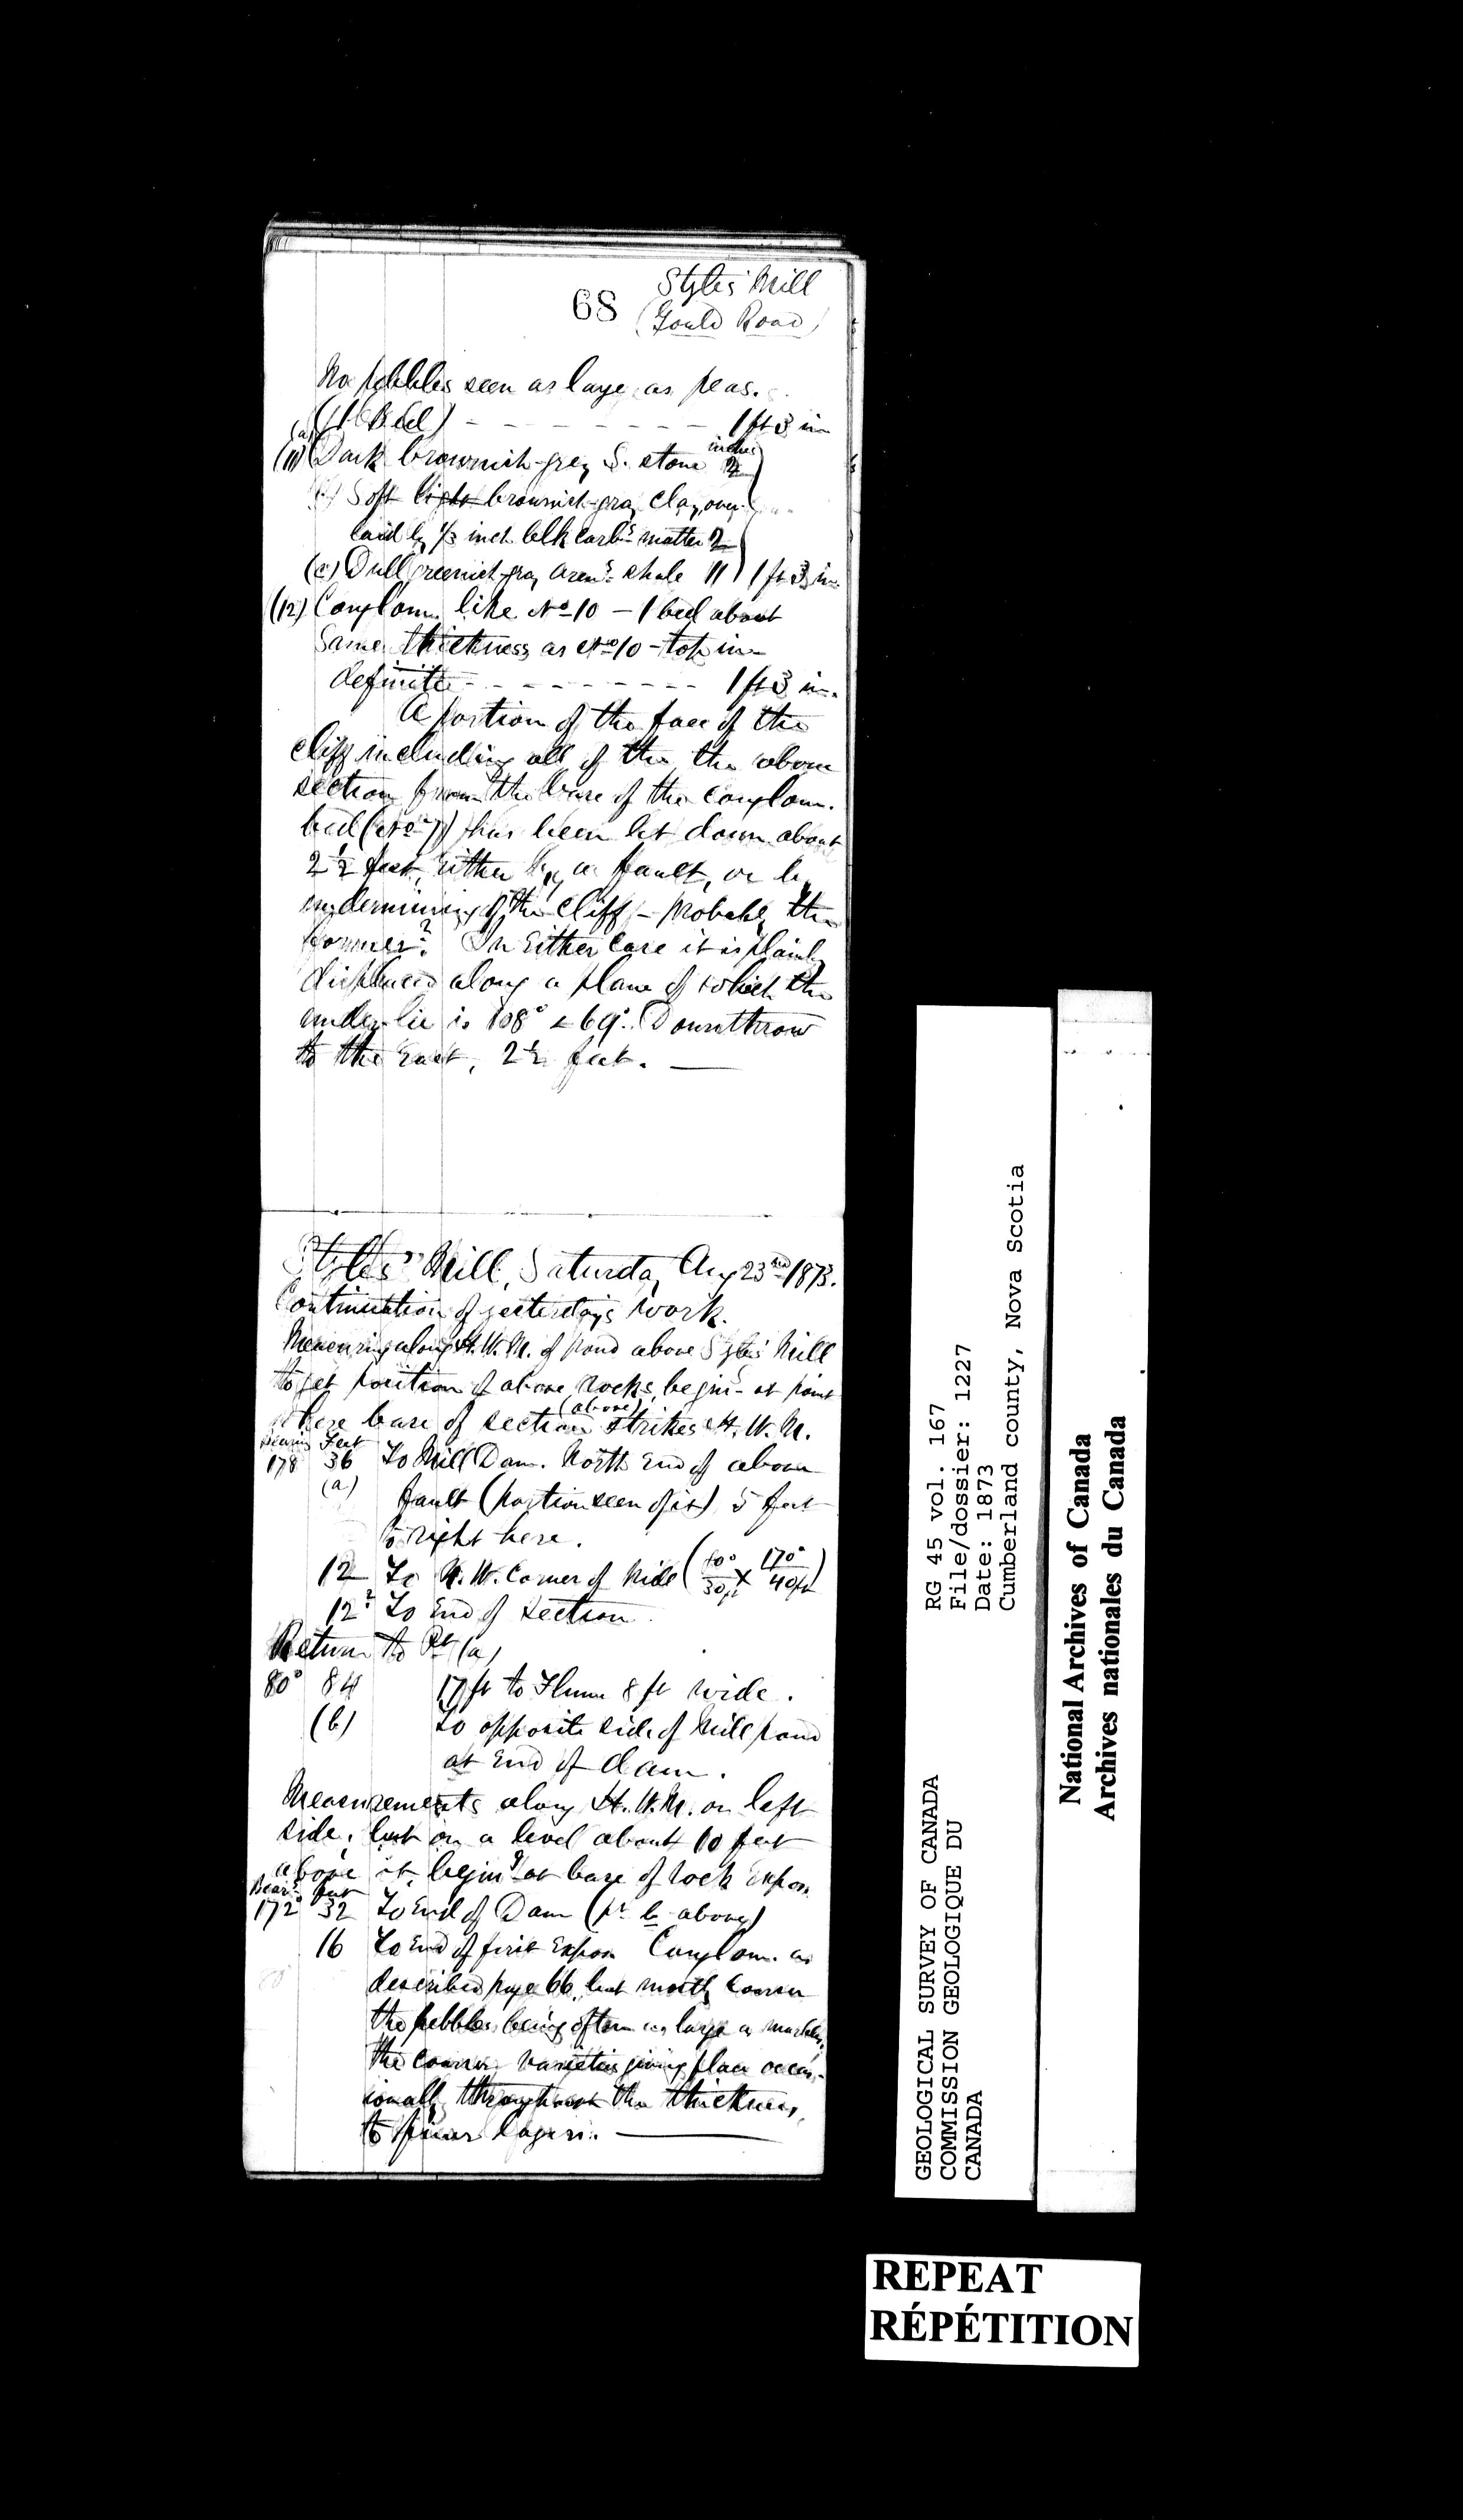 68
Styles' Mill
(Gould Road)
No pebbles seen as large as peas.
(1 Bed) - - - - - - - - 1 ft 3 in
(11) (a) Dark brownish-grey S. stone inches 2
Soft light brownish-gray clay, over-
laid by 1/3 inch blk carbs matter 2
(c) Dull greenish-gray arens shale 11 1 ft 3 in.
(12) Conglom. like No 10 - 1 bed about
same thickness as No 10 - top in-
definite - - - - - - - - - 1 ft 3 in.
A portion of the face of the
cliff including all of the the above
section from the base of the conglom.
bed (No 7) has been let down about
2 1/2 feet, either by a fault, or by
undermining of the cliff - probably the
former? In either case it is plainly
displaced along a plane of which the
underlie is 108° < 69°. Downthrow
to the East, 2 1/2 feet.
Styles' Mill, Saturday Aug 23rd 1873.
Continuation of yesterday's work.
Measuring along H.W.M. of pond above Styles' Mill
to get position of above rocks, begin^g at point
where base of section (above) strikes H.W.M.
Bearing Feet
178 36 To Mill Dam. North End of above
(a) fault (portion seen of it) 5 feet
to right here.
12 To N.W. Corner of Mill ( 30 ft × 170° 40 ft )
12? To End of section
Return to Pt (a)
80° 84 17 ft to Flume 8 ft wide.
(b) To opposite side of Mill pond
at End of dam.
Measurements along H.W.M. on left
side, but on a level about 10 feet
above it, begin^g at base of rock Expos.
Bear^g feet
172° 32 To End of Dam (pt b above)
16 To End of first Expos. Conglom. as
described page 66, but mostly coarser
the pebbles being often as large as marbles,
the coarser varieties giving place occas-
ionally throughout the thickness,
to finer layers.
GEOLOGICAL SURVEY OF CANADA
COMMISSION GEOLOGIQUE DU
CANADA
RG 45 vol. 167
File/dossier: 1227
Date: 1873
Cumberland county, Nova Scotia
National Archives of Canada
Archives nationales du Canada
REPEAT
RÉPÉTITION